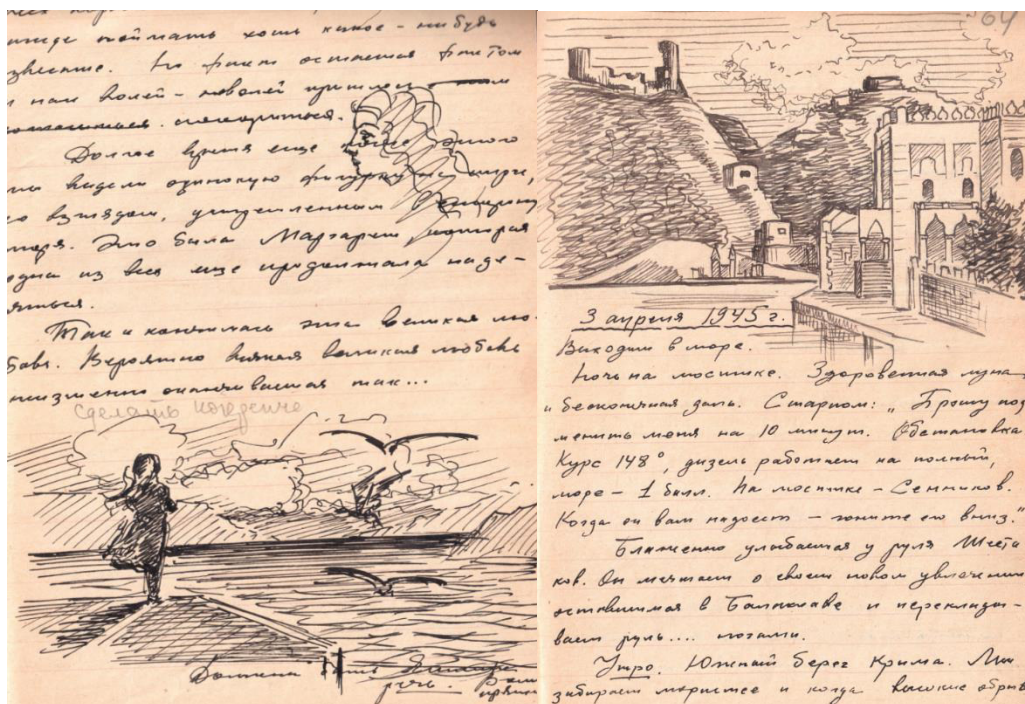 надежде поймать хоть какое-нибудь
известие. Но факт остается фактом
и нам волей-неволей пришлось с этим
примириться.
Долгое время еще после этого
мы видели одинокую фигурку на пирсе,
со взглядом, устремленным в сторону
моря. Это была Маргарет, которая
одна из всех еще продолжала наде-
яться.
Так и кончилась эта великая лю-
бовь. Вероятно всякая великая любовь
неизменно оканчивается так...
сделать
речь.
64
3 апреля 1945 г.
Выходим в море.
Ночь на мостике. Здоровенная луна
и бесконечная даль. Старпом: „Прошу под
менить меня на 10 минут. Обстановка
Курс 148°, дизель работает на полный,
море – 1 балл. На мостике – Сенников.
Когда он вам надоест – гоните его вниз."
Блаженно улыбается у руля Шеста
ков. Он мечтает о своем новом увлечении
оставшимся в Балаклаве и перекладу-
вает руль.... ногами.
Утро. Южный берег Крыма. Мы
забираем мористее и когда высокие обрыв